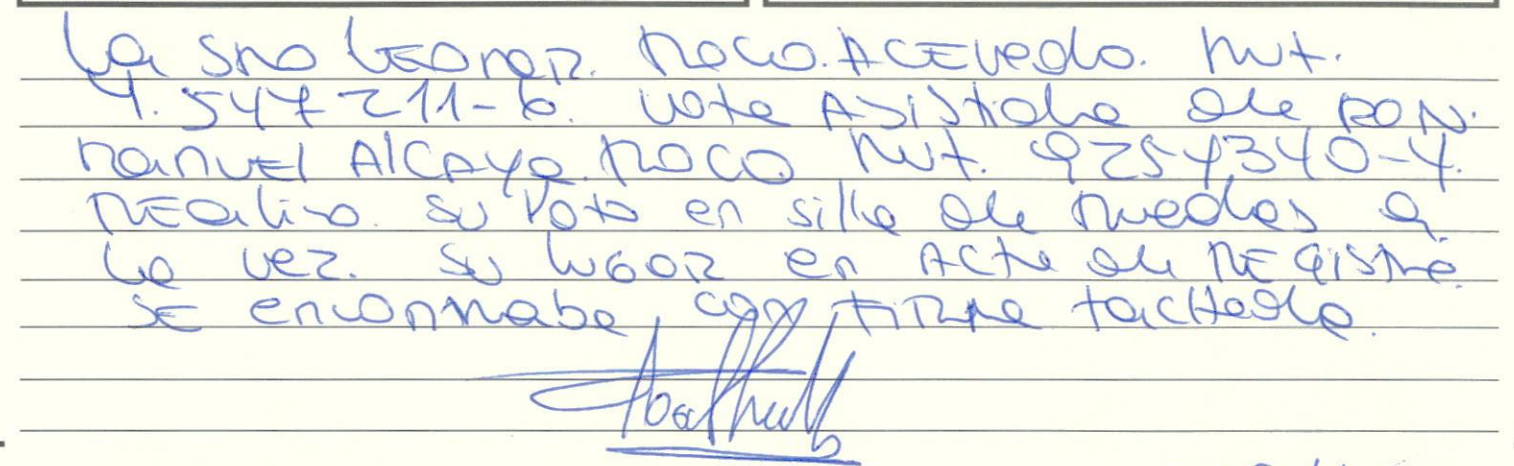 La Sra Leonor. Roco. Acevedo. Rut.
4.547211-6. vota Asistida de DON.
Manuel Alcaya. Roco Rut. 9254340-4.
Realiso. su Voto en silla de ruedas a
la vez. su lugar en Acta de Registro.
se encontraba, con firma tachada.